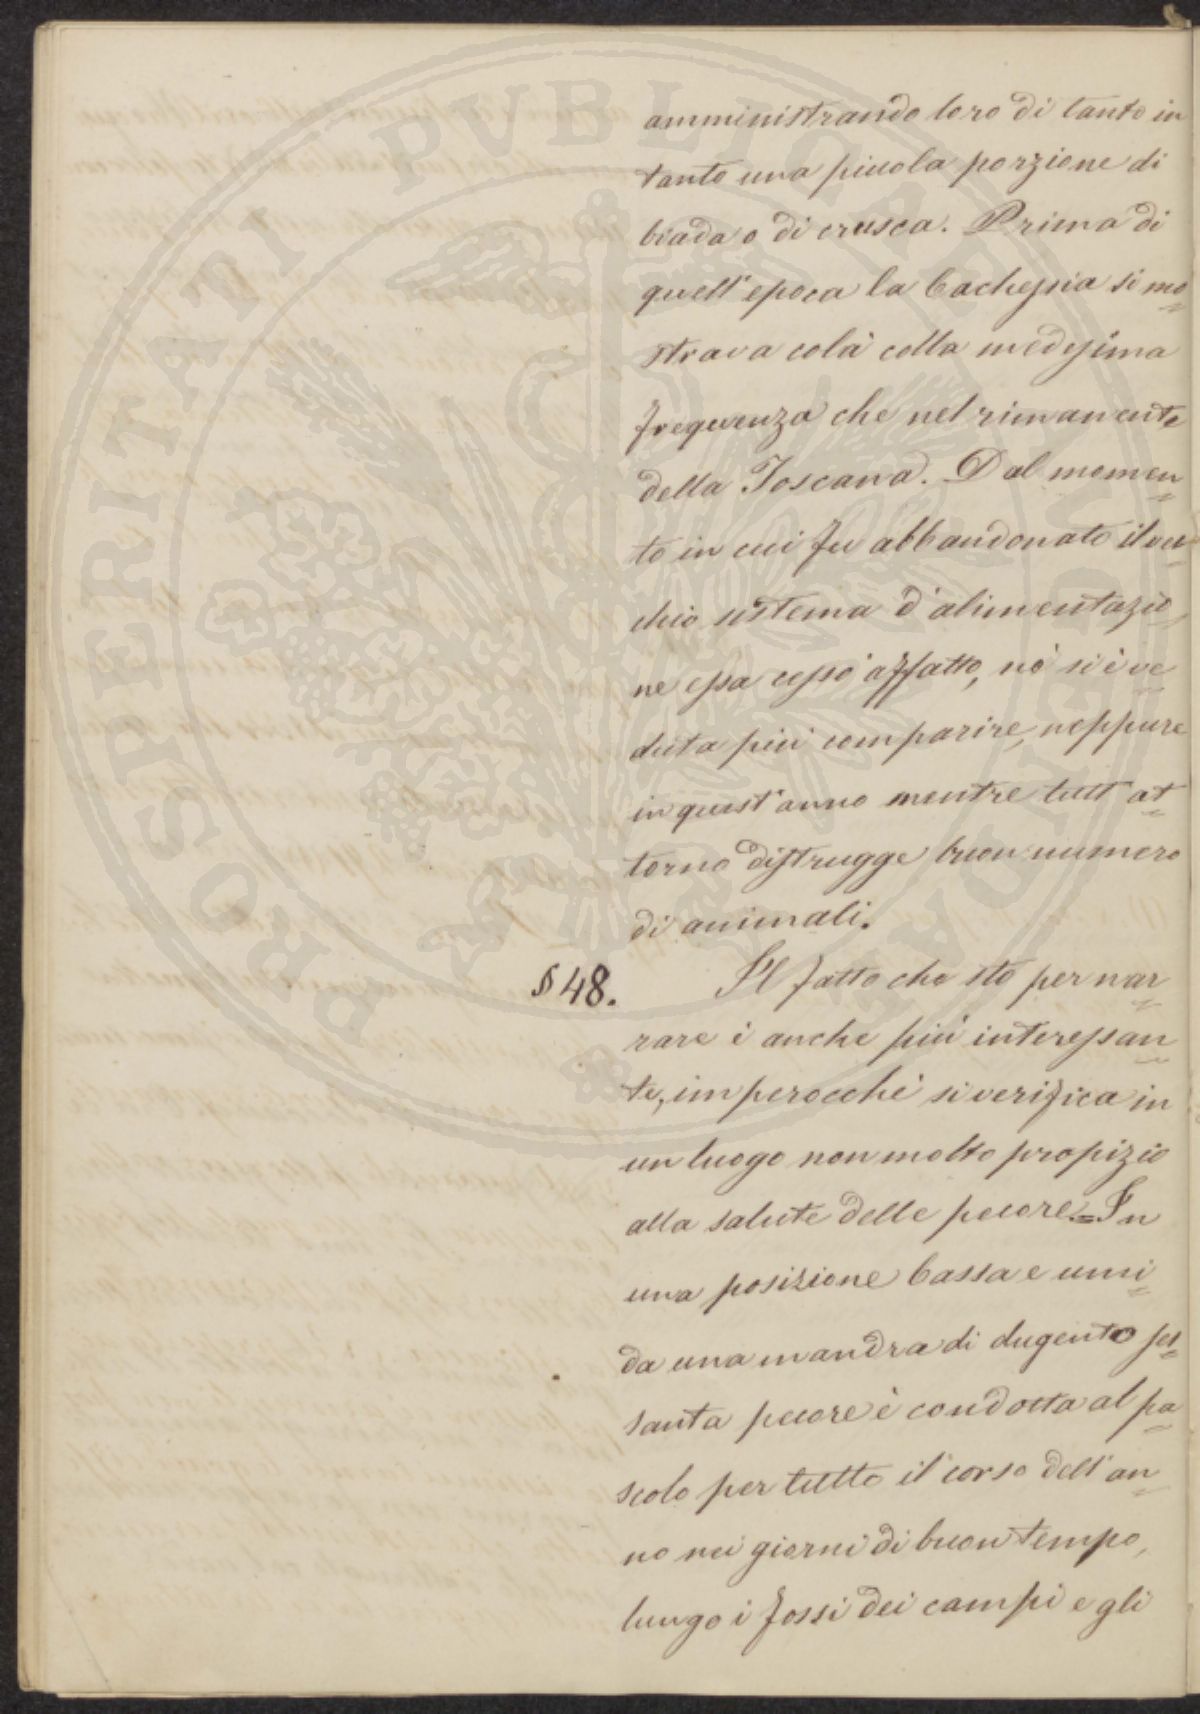 amministrando loro di tanto in
tanto una piccola porzione di
biada o di crusca. Prima di
quell'epoca la Cachessia si mo
strava colà colla medesima
frequenza che nel rimanente
della Toscana. Dal momen
to in cui fu abbandonato il vec
chio sistema d'alimentazio
ne essa cessò affatto, nè si è ve
duta più comparire, neppure
in quest'anno mentre tutt'at
torno distrugge buon numero
di animali.
§ 48. Il fatto che sto per nar
rare è anche più interessan
te, imperocchè si verifica in
un luogo non molto propizio
alla salute delle pecore = In
una posizione bassa e umi
da una mandra di dugento ses
santa pecore è condotta al pa
scolo per tutto il corso dell'an
no nei giorni di buon tempo,
lungo i fossi dei campi e gli
PROSPERITATI PVBLICAE AVGENDAE